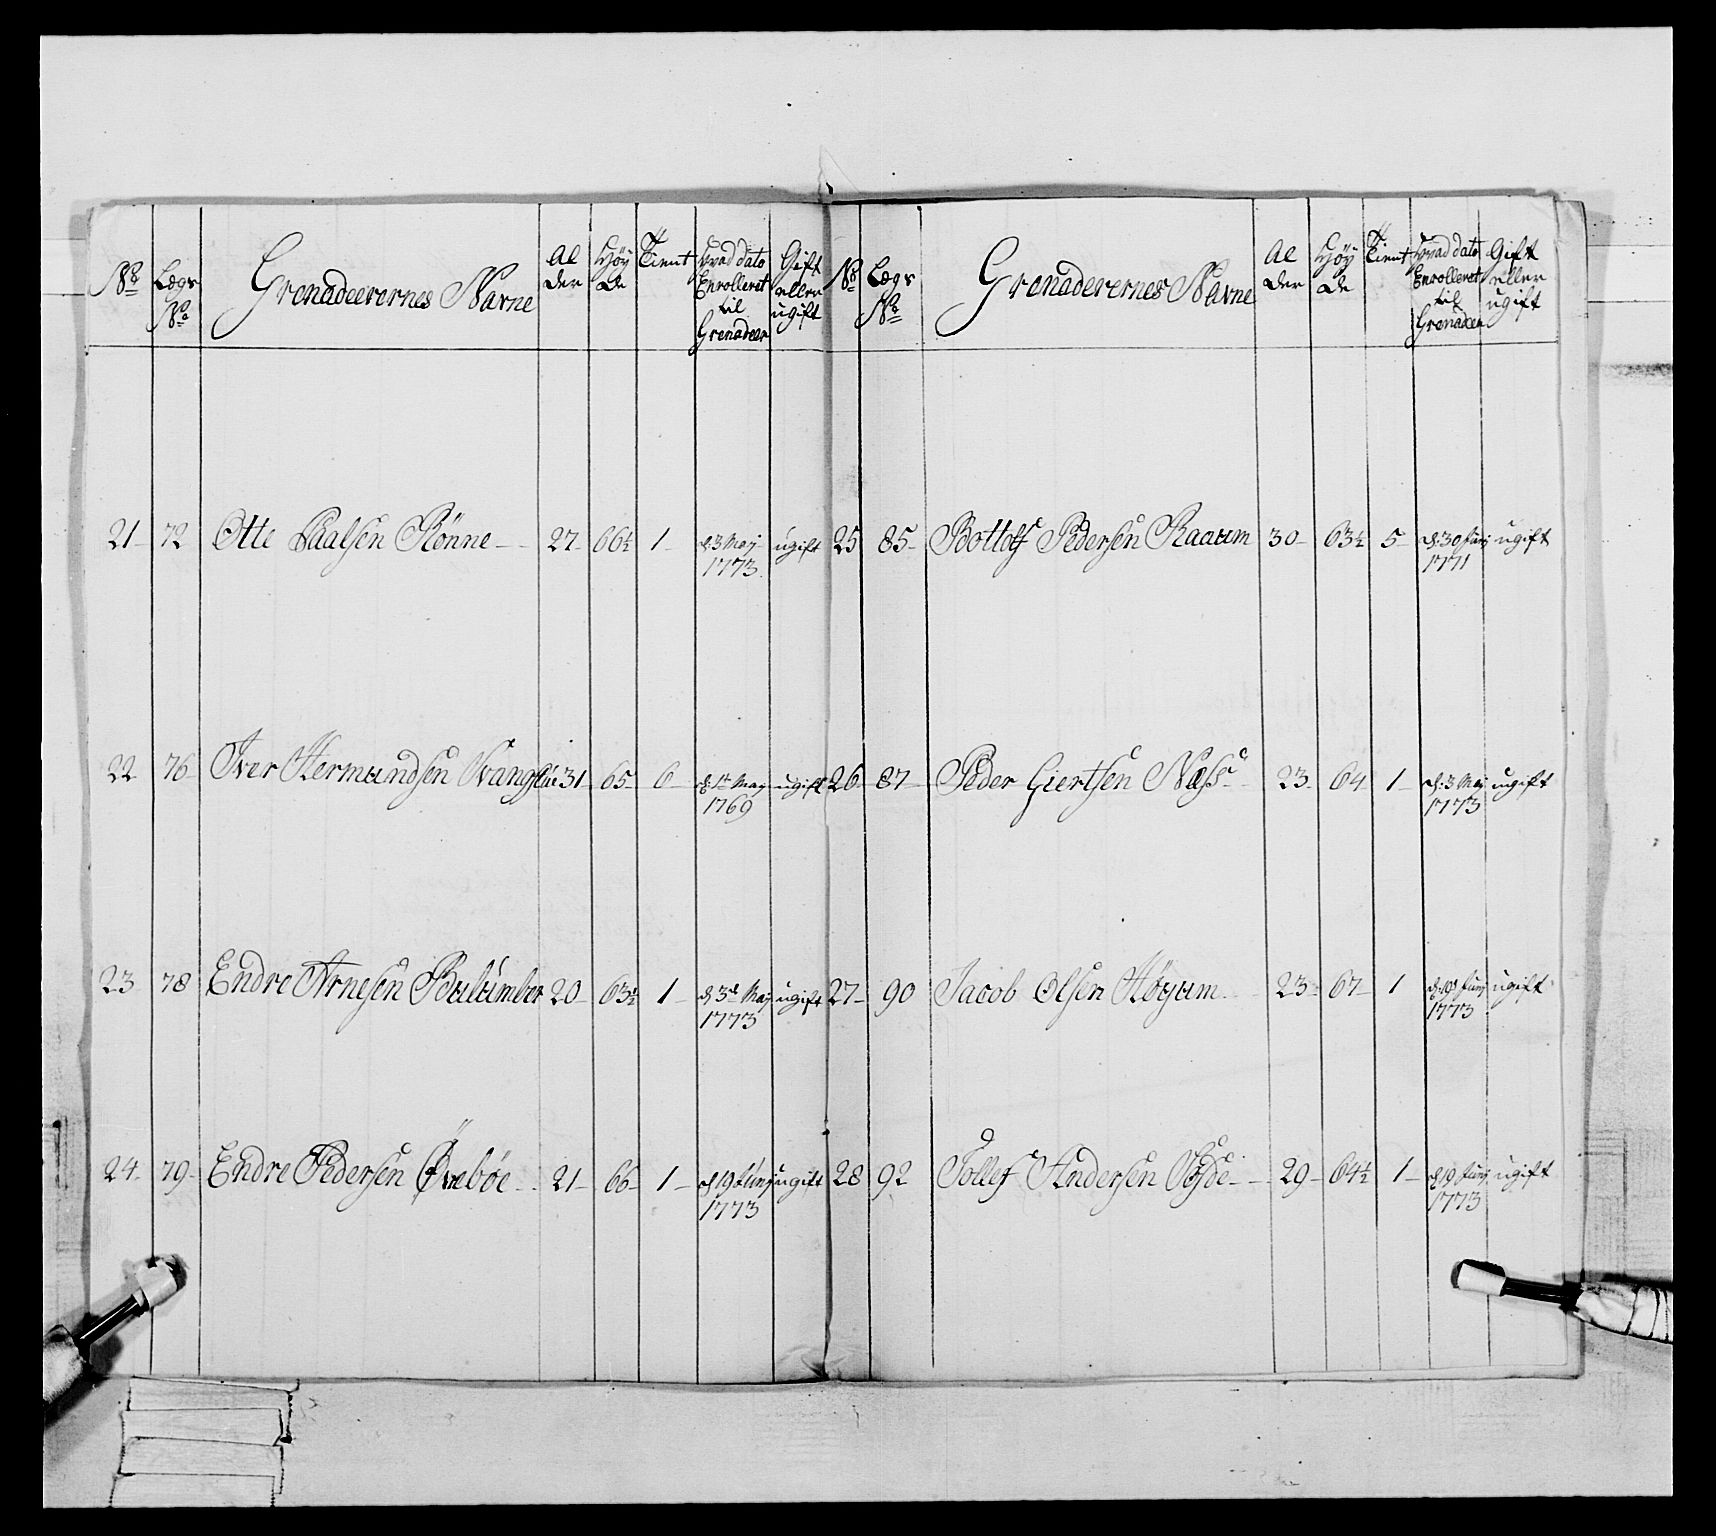 No Lægs No Grenadeerernes Navne Al der Høy de Tient Hvad dato Enrolleret til Grenadeer Gift eller ugift
21 72 Otte Paalsen Rönne 27 66½ 1 d 3 Maj 1773 ugift
22 76 Iver Hermundsen 31 65 6 d 1te Maj 1769 ugift
23 78 Endre Arnesen 20 63½ 1 d 3de Maj 1773 ugift
24 79 Endre Pedersen Övreböe 21 66 1 d 19 Junj 1773 ugift
No Lægs No Grenaderernes Navne Al der Høy de Tient Hvad dato Enrolleret til Grenadeer Gift eller ugift
25 85 Bottolf Pedersen Raaum 30 63½ 5 d: 30 Junj 1771 ugift
26 87 Peder Giertsen Næss 23 64 1 d: 3 Maj 1773 ugift
27 90 Jacob Olsen Höyum 23 67 1 d: 19 Junj 1773 ugift
28 92 Tollef Andersen 29 64½ 1 d 19 Junj 1773 ugift